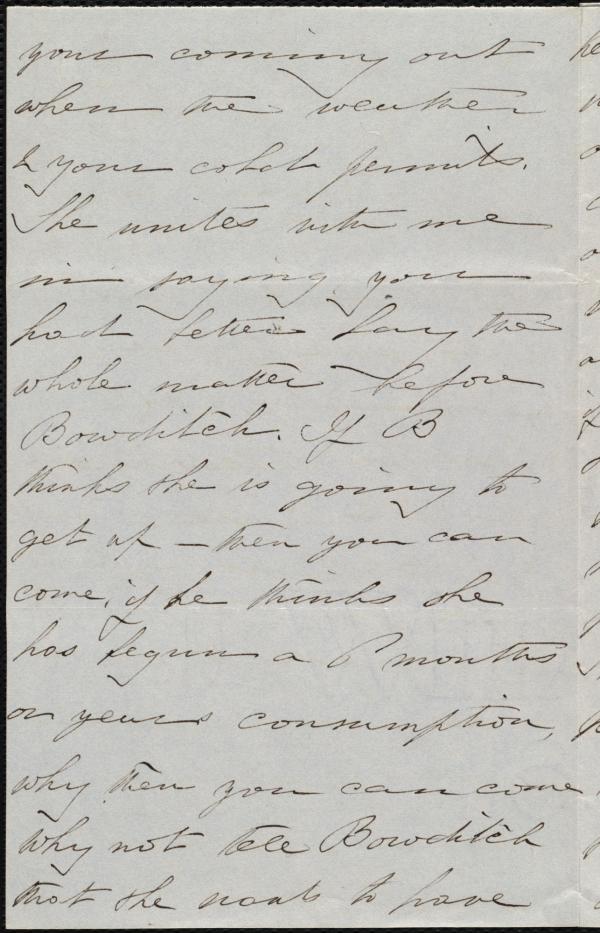 your coming out
when the weather
& your cold permits.
She unites with me
in saying you
had better lay the
whole matter before
Bowditch. If B
thinks she is going to
get up – then you can
come, if he thinks she
has begun a 6 months
or years consumption,
why then you can come.
Why not tell Bowditch
that she wants to have